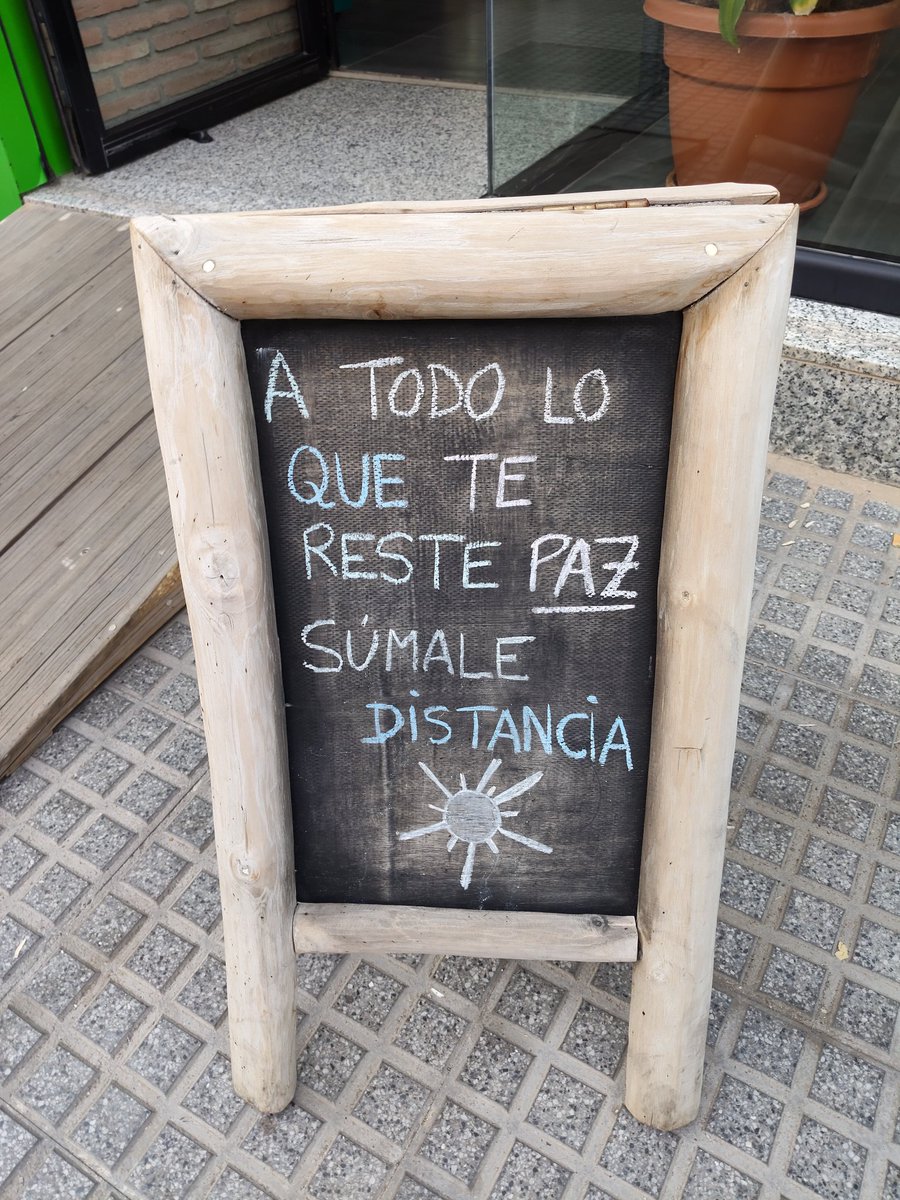 A TODO LO
QUE TE
RESTE PAZ
SÚMALE
DISTANCIA